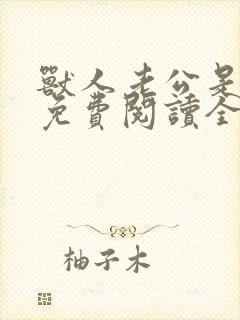 獸人老公是
免費閱讀全
柚子木